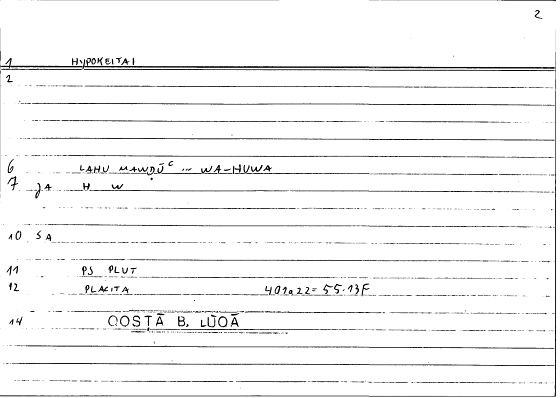 2
1 HYPOKEITAI
2
6 LAHU MAWḌŪᶜ ... WA-HUWA
7 JA H W
10 SA
11 PS PLUT
12 PLACITA 401a22 = 55.13F
14 QOSṬĀ B. LŪQĀ